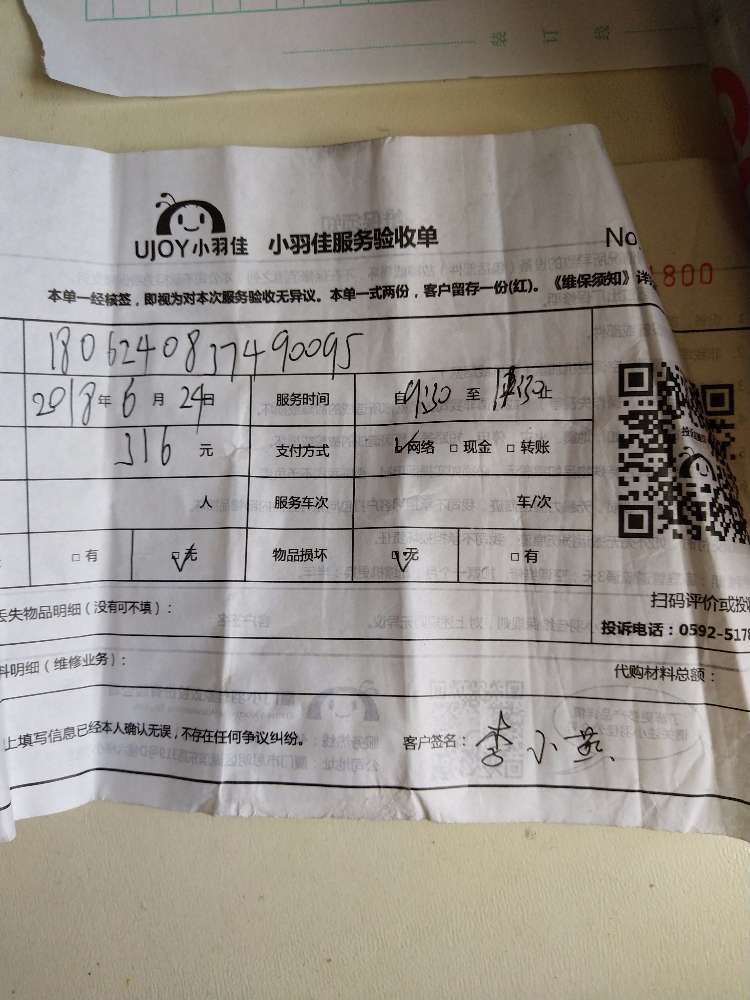 装 订 线
UJOY小羽佳 小羽佳服务验收单
No.
1800
本单一经核签,即视为对本次服务验收无异议。本单一式两份,客户留存一份(红)。《维保须知》详
180624083749009​5
2018年6月24日 服务时间 自9:30至 :30止
316元 支付方式 ☑网络 □现金 □转账
人 服务车次 车/次
□有 ☑无 物品损坏 ☑无 □有
扫码评价或投
丢失物品明细(没有可不填):
投诉电话:0592-5178
料明细(维修业务): 代购材料总额:
上填写信息已经本人确认无误,不存在任何争议纠纷。 客户签名:李小燕